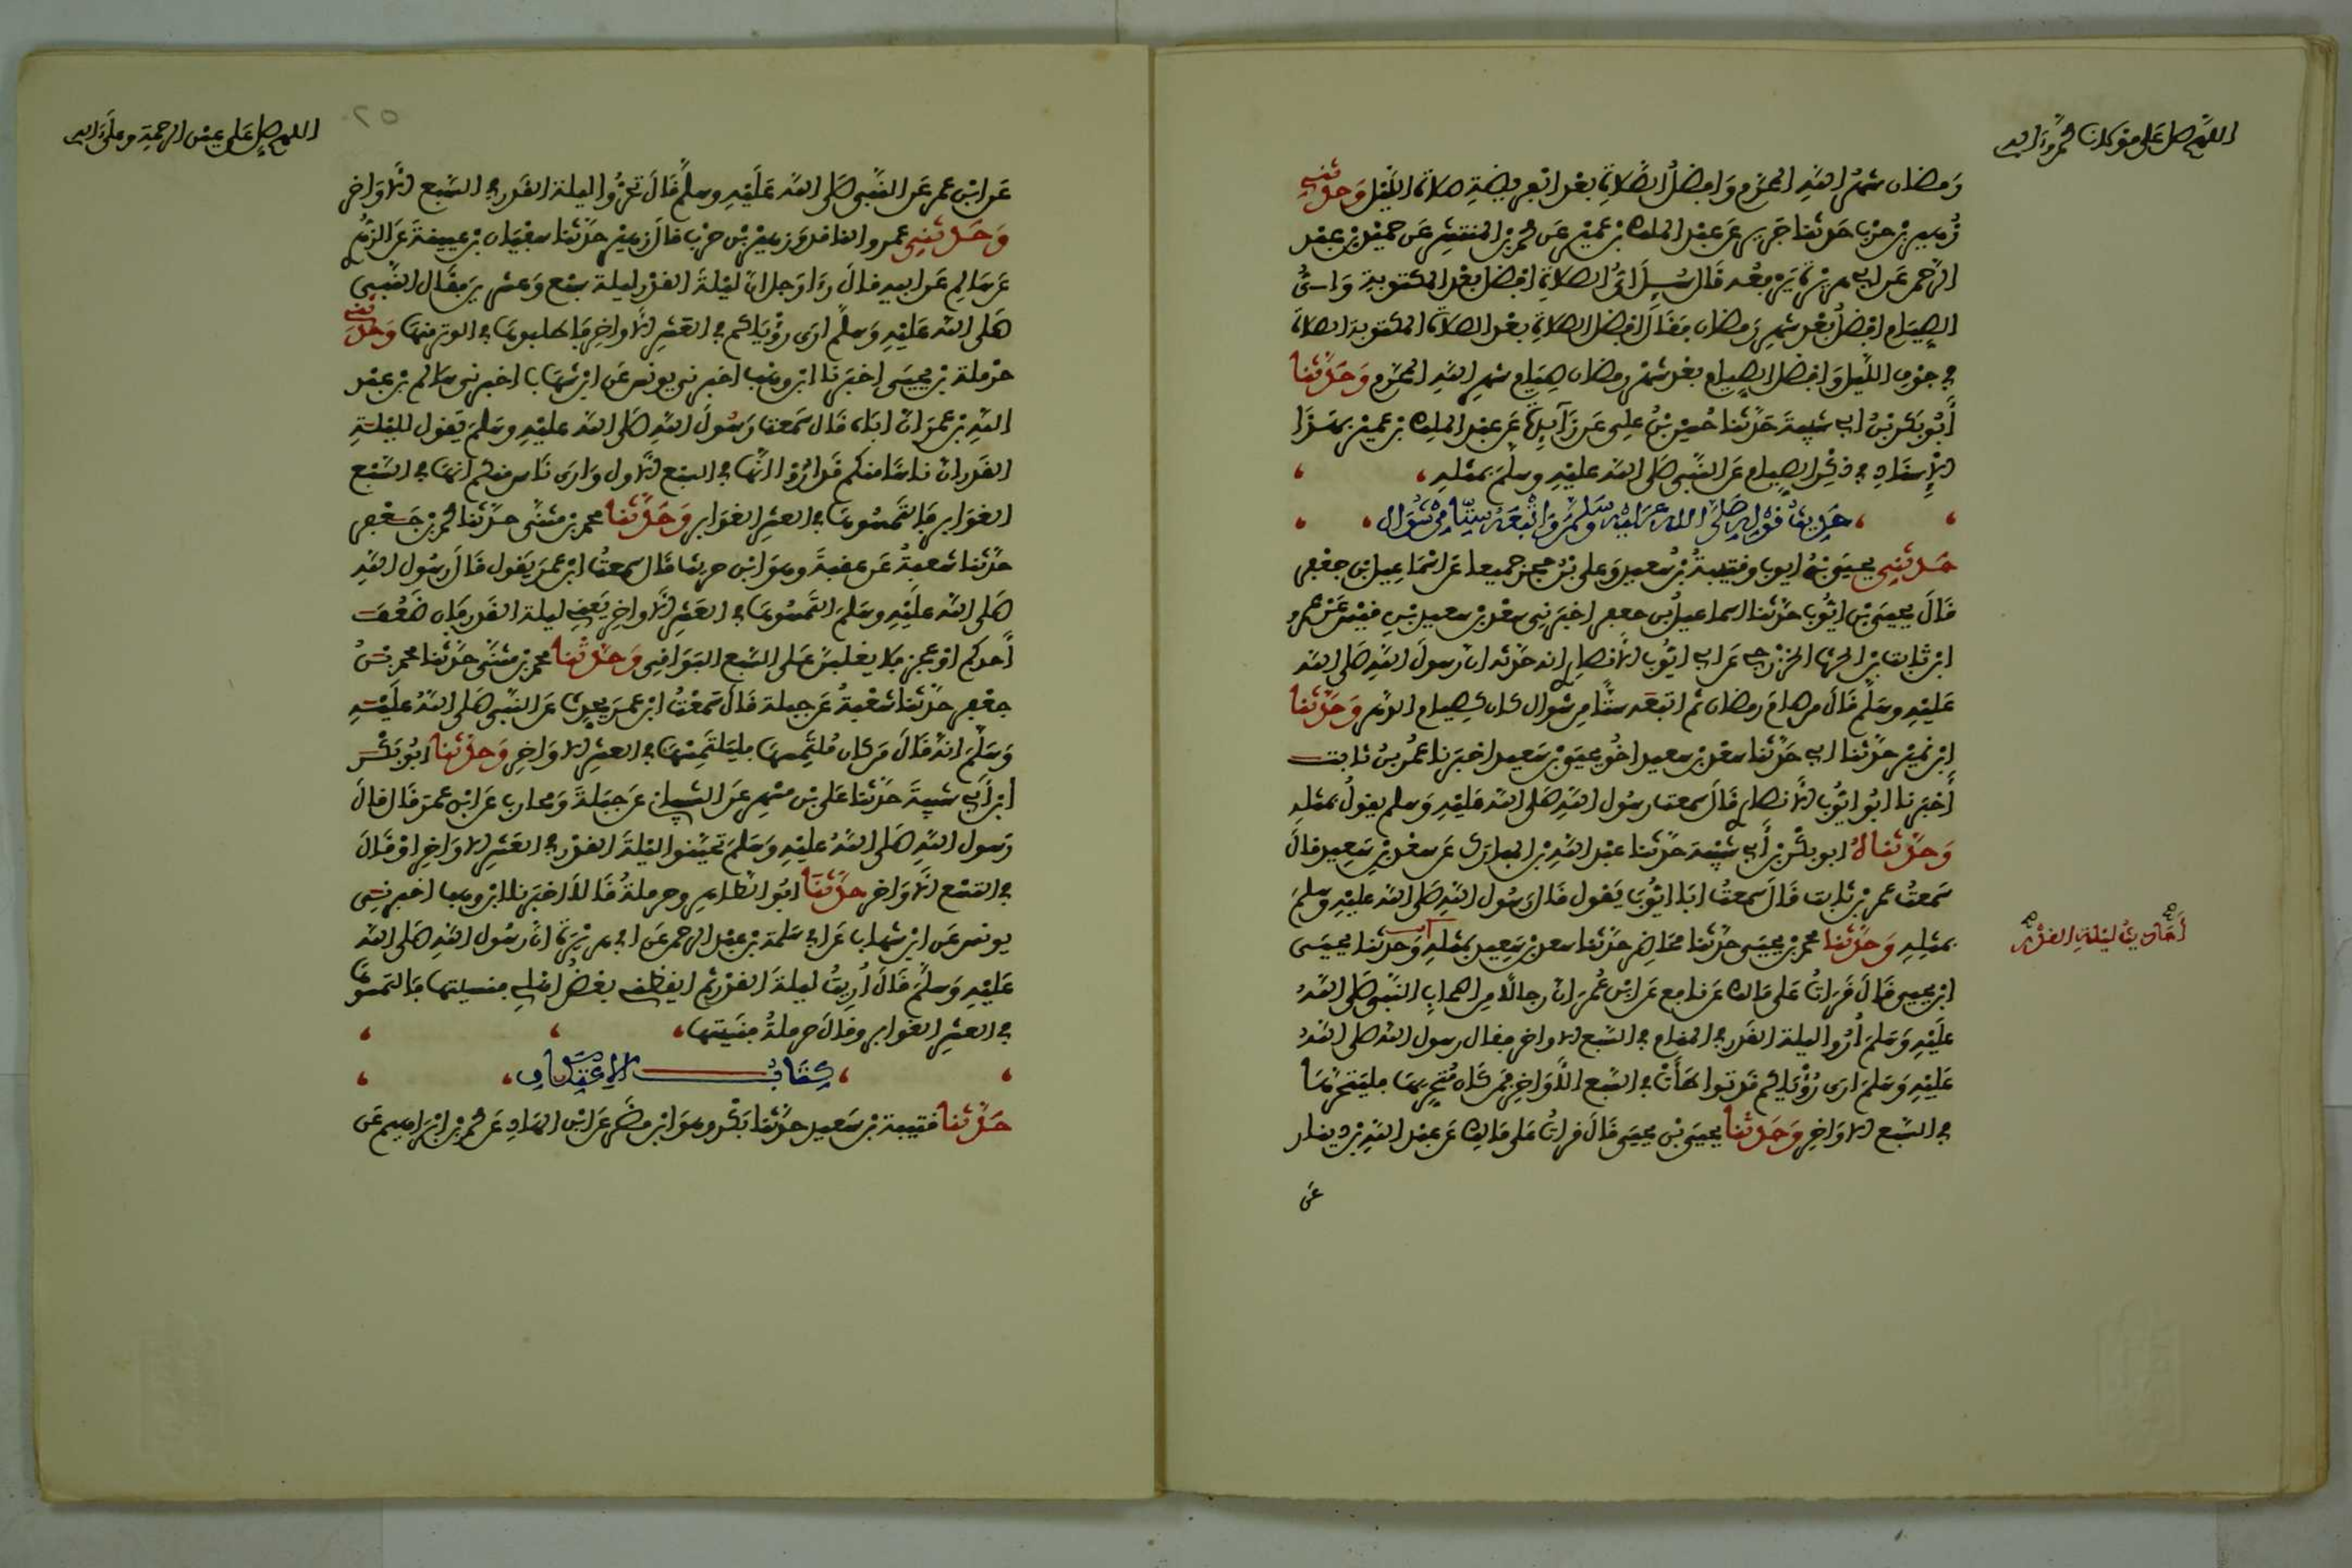 اللهم صل على مولانا محمد وءاله
رمضان شهر الله المحرم وافضل الصلاة بعد الفريضة صلاة الليل وحدثني
زهير بن حرب حدثنا جرير عن عبد الملك بن عمير عن محمد بن المنتشر عن حميد بن عبد
الرحمن عن ابي هريرة يرفعه قال سيل اي الصلاة افضل بعد المكتوبة واي
الصيام افضل بعد شهر رمضان فقال افضل الصلاة بعد الصلاة المكتوبة الصلاة
في جوف الليل وافضل الصيام بعد شهر رمضان صيام شهر الله المحرم وحدثنا
أبو بكر بن ابي شيبة حدثنا حسين بن علي عن زآيدة عن عبد الملك بن عمير بهذا
الإسناد في ذكر الصيام عن النبي صلى الله عليه وسلم بمثله
حديث قوله صلى الله عليه وسلم واتبعه ستا من شوال
حدثني يحيى بن ايوب وقتيبة بن سعيد وعلي بن حجر جميعا عن اسماعيل بن جعفر
قال يحيى بن ايوب حدثنا اسماعيل بن جعفر اخبرني سعد بن سعيد بن قيس عن عمر
ابن ثابت بن الحرث الخزرجي عن ابي ايوب الأنصاري انه حدثه ان رسول الله صلى الله
عليه وسلم قال من صام رمضان ثم اتبعه ستا من شوال كان كصيام الدهر وحدثنا
ابن نمير حدثنا ابي حدثنا سعد بن سعيد اخو يحيى بن سعيد اخبرنا عمر بن ثابت
أخبرنا ابو ايوب الأنصاري قال سمعت رسول الله صلى الله عليه وسلم يقول بمثله
وحدثناه ابو بكر بن أبي شيبة حدثنا عبد الله بن المبارك عن سعد بن سعيد قال
سمعت عمر بن ثابت قال سمعت ابا ايوب يقول قال رسول الله صلى الله عليه وسلم
بمثله وحدثنا محمد بن يحيى حدثنا محاضر حدثنا سعد بن سعيد بمثله وحدثنا يحيى
أحاديث ليلة القدر
ابن يحيى قال قرات على مالك عن نافع عن ابن عمر ان رجالا من اصحاب النبي صلى الله
عليه وسلم أروا ليلة القدر في المنام في السبع الاواخر فقال رسول الله صلى الله
عليه وسلم ارى رؤياكم قد تواطأت في السبع الأواخر فمن كان متحريها فليتحرها
في السبع الاواخر وحدثنا يحيى بن يحيى قال قرات على مالك عن عبد الله بن دينار
عن
اللهم صل على عين الرحمة وعلى ءاله
٢٥
عن ابن عمر عن النبي صلى الله عليه وسلم قال تحروا ليلة القدر في السبع الأواخر
وحدثني عمرو الناقد وزهير بن حرب قال زهير حدثنا سفيان بن عيينة عن الزهري
عن سالم عن ابيه قال رءا رجل ان ليلة القدر ليلة سبع وعشرين فقال النبي
صلى الله عليه وسلم ارى رؤياكم في العشر الأواخر فاطلبوها في الوتر منها وحدثني
حرملة بن يحيى اخبرنا ابن وهب اخبرني يونس عن ابن شهاب اخبرني سالم بن عبد
الله بن عمر ان اباه قال سمعت رسول الله صلى الله عليه وسلم يقول لليلة
القدر ان ناسا منكم قد أروا انها في السبع الأول وارى ناس منكم انها في السبع
الغوابر فالتمسوها في العشر الغوابر وحدثنا محمد بن مثنى حدثنا محمد بن جعفر
حدثنا شعبة عن عقبة وهو ابن حريث قال سمعت ابن عمر يقول قال رسول الله
صلى الله عليه وسلم التمسوها في العشر الأواخر يعني ليلة القدر فان ضعف
أحدكم او عجز فلا يغلبن على السبع البواقي وحدثنا محمد بن مثنى حدثنا محمد بن
جعفر حدثنا شعبة عن جبلة قال سمعت ابن عمر يحدث عن النبي صلى الله عليه
وسلم انه قال من كان ملتمسها فليلتمسها في العشر الاواخر وحدثنا ابو بكر
ابن أبي شيبة حدثنا علي بن مسهر عن الشيباني عن جبلة ومحارب عن ابن عمر قال قال
رسول الله صلى الله عليه وسلم تحينوا ليلة القدر في العشر الاواخر او قال
في التسع الأواخر حدثنا ابو الطاهر وحرملة قالا اخبرنا ابن وهب اخبرني
يونس عن ابن شهاب عن ابي سلمة بن عبد الرحمن عن ابي هريرة ان رسول الله صلى الله
عليه وسلم قال أريت ليلة القدر ثم ايقظني بعض اهلي فنسيتها فالتمسوها
في العشر الغوابر وقال حرملة فنسيتها
كتاب الاعتكاف
حدثنا قتيبة بن سعيد حدثنا بكر وهو ابن مضر عن ابن الهاد عن محمد بن ابراهيم عن